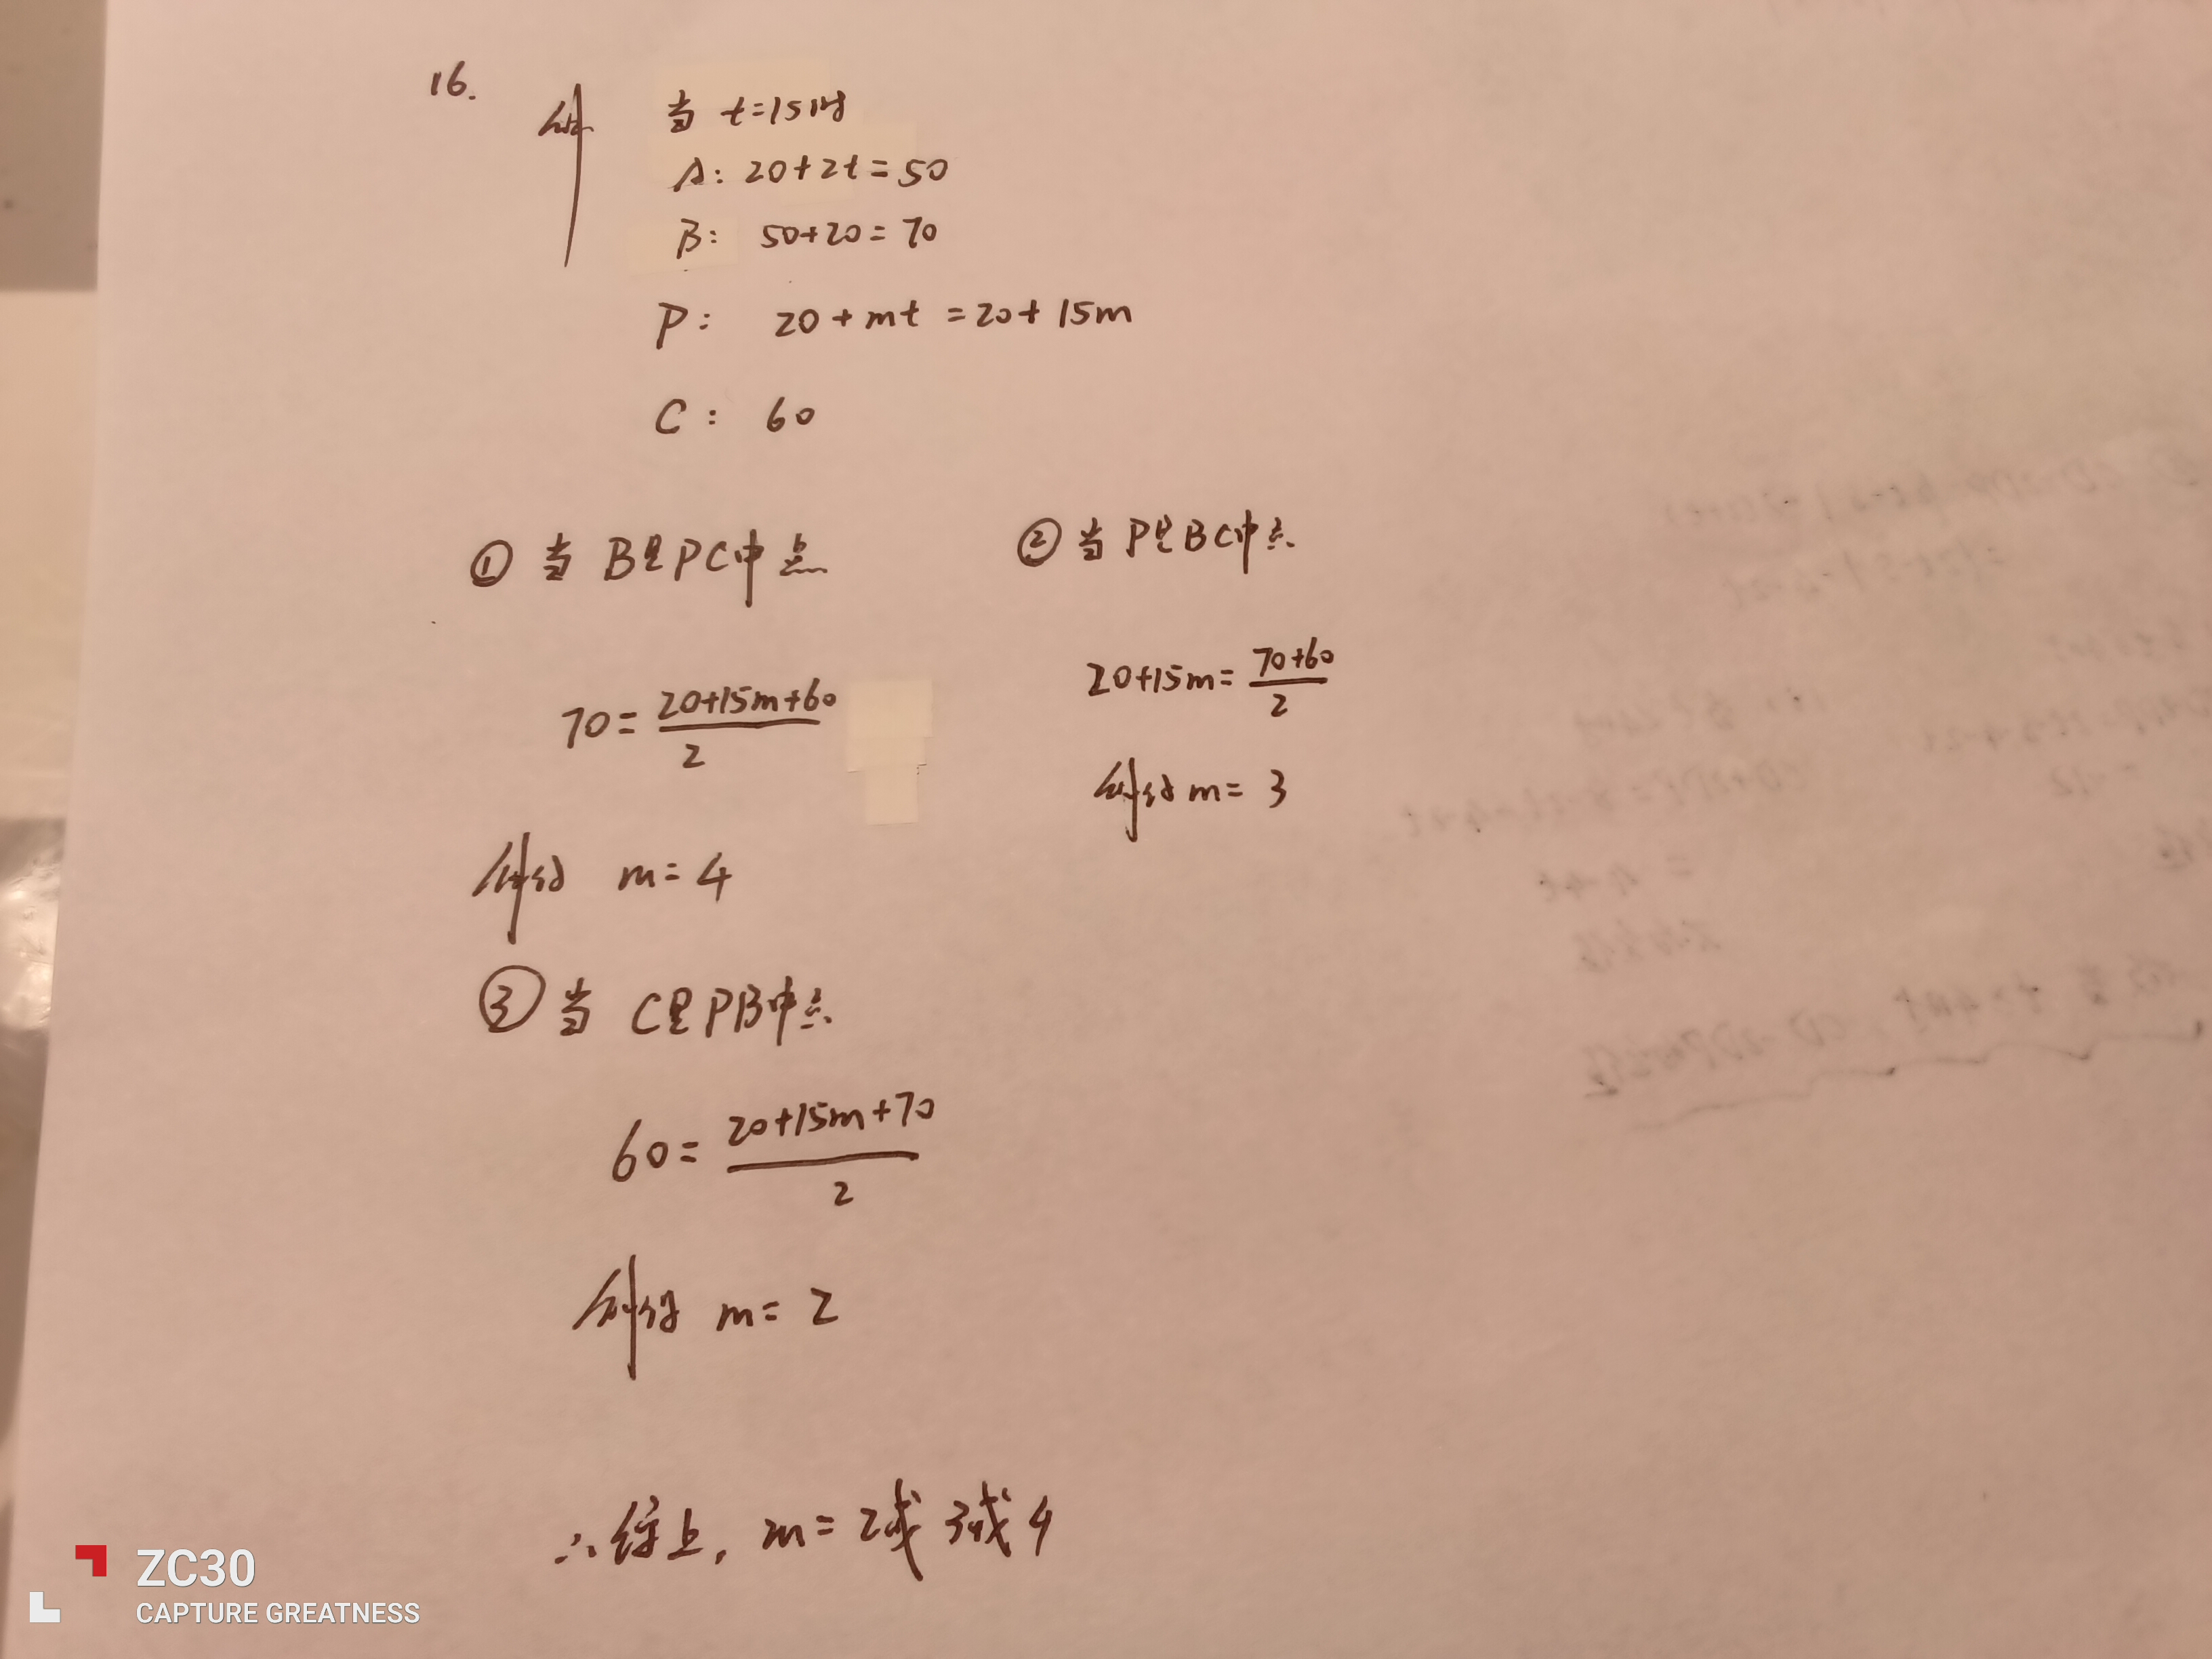 16.
解 当 t=15时
A: 20+2t=50
B: 50+20=70
P: 20+mt=20+15m
C: 60
① 当 B是PC中点
70=(20+15m+60)/2
解得 m=4
② 当 P是BC中点
20+15m=(70+60)/2
解得 m=3
③ 当 C是PB中点
60=(20+15m+70)/2
解得 m=2
∴综上, m=2或3或4
ZC30
CAPTURE GREATNESS